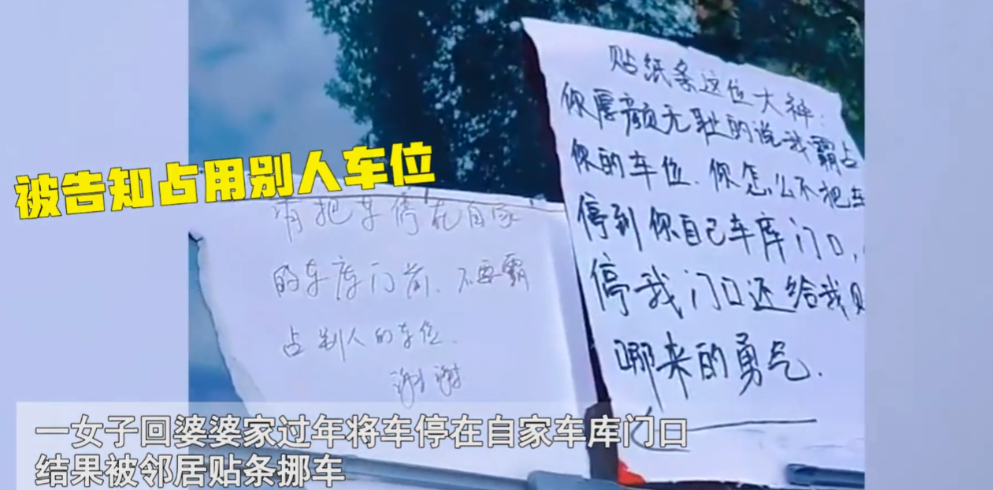 被告知占用别人车位
请把车停在自家
的车库门前.不要霸
占别人的车位.
谢谢
贴纸条这位大神:
你厚颜无耻的说我霸占
你的车位.你怎么不把车
停到你自己车库门口,
停我门口还给我贴
哪来的勇气.
一女子回婆婆家过年将车停在自家车库门口
结果被邻居贴条挪车